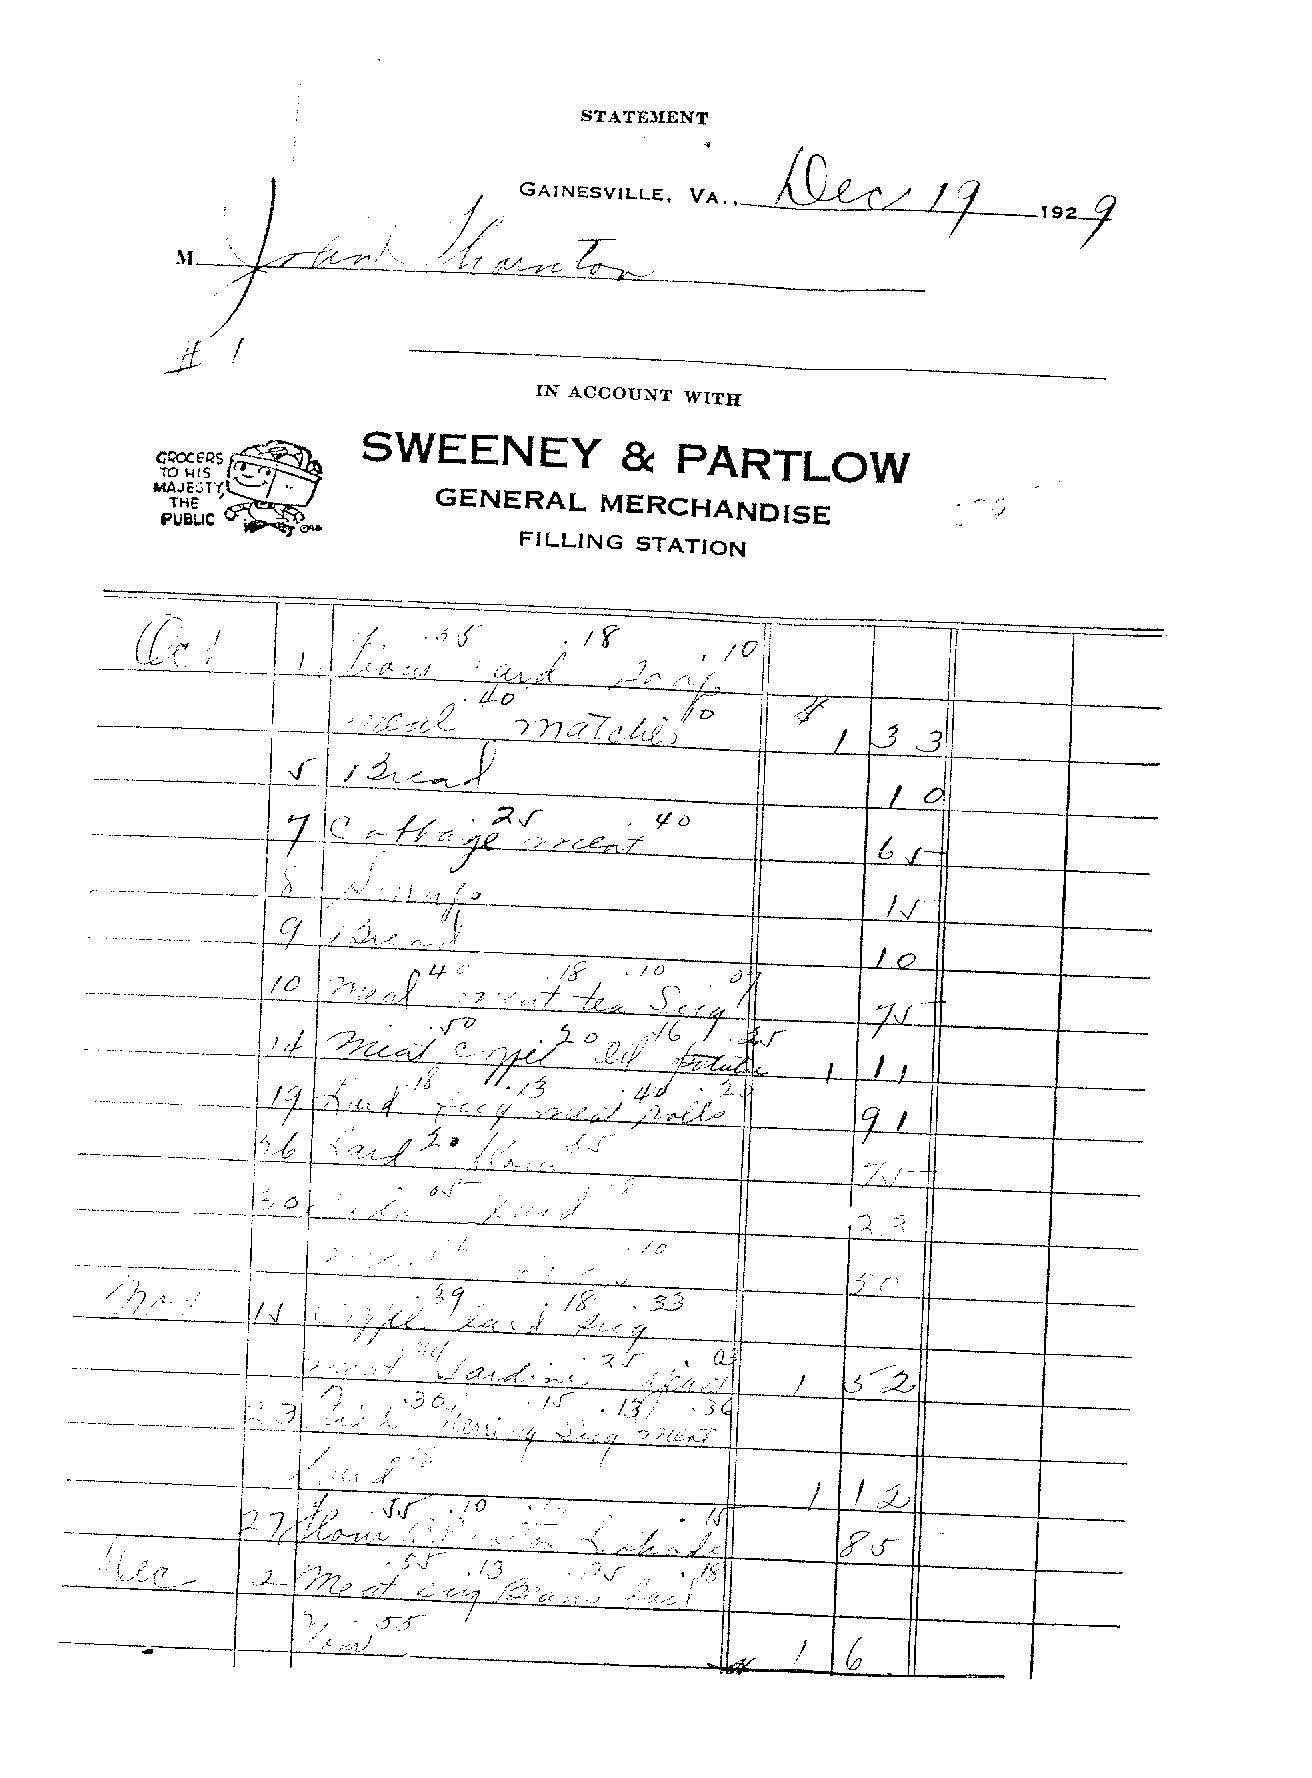 STATEMENT
GAINESVILLE, VA., Dec 19 1929
M Thornton
# 1
IN ACCOUNT WITH
GROCERS
TO HIS
MAJESTY,
THE
PUBLIC
SWEENEY & PARTLOW
GENERAL MERCHANDISE
FILLING STATION
.55 .18 .10
Oct 1 Flour Lard Soap
.40 10
meal matches $ 1 33
5 Bread 10
.25 .40
7 Cottage meat 65
8 15
9 Bread 10
40 .18 .10 07
10 meal meat tea Sug 75
.50 20 16 .25
14 Meat Coffee Oil potatoes 1 11
18 .13 .40 .20
19 Lard Sug meat rolls 91
20 55
26 Lard flour 75
05
30 Lard
.10
50
.39 .18 .33
Nov 15 Coffee Lard Sug
25
meat Sardines 1 52
.30 .15 .13 .36
23 Herring Sug meat
Lard 1 12
.55 .10 .15
27 Flour 85
.55 .13 .25 .18
Dec 2 Meat Sug Beans Lard
55
1 6